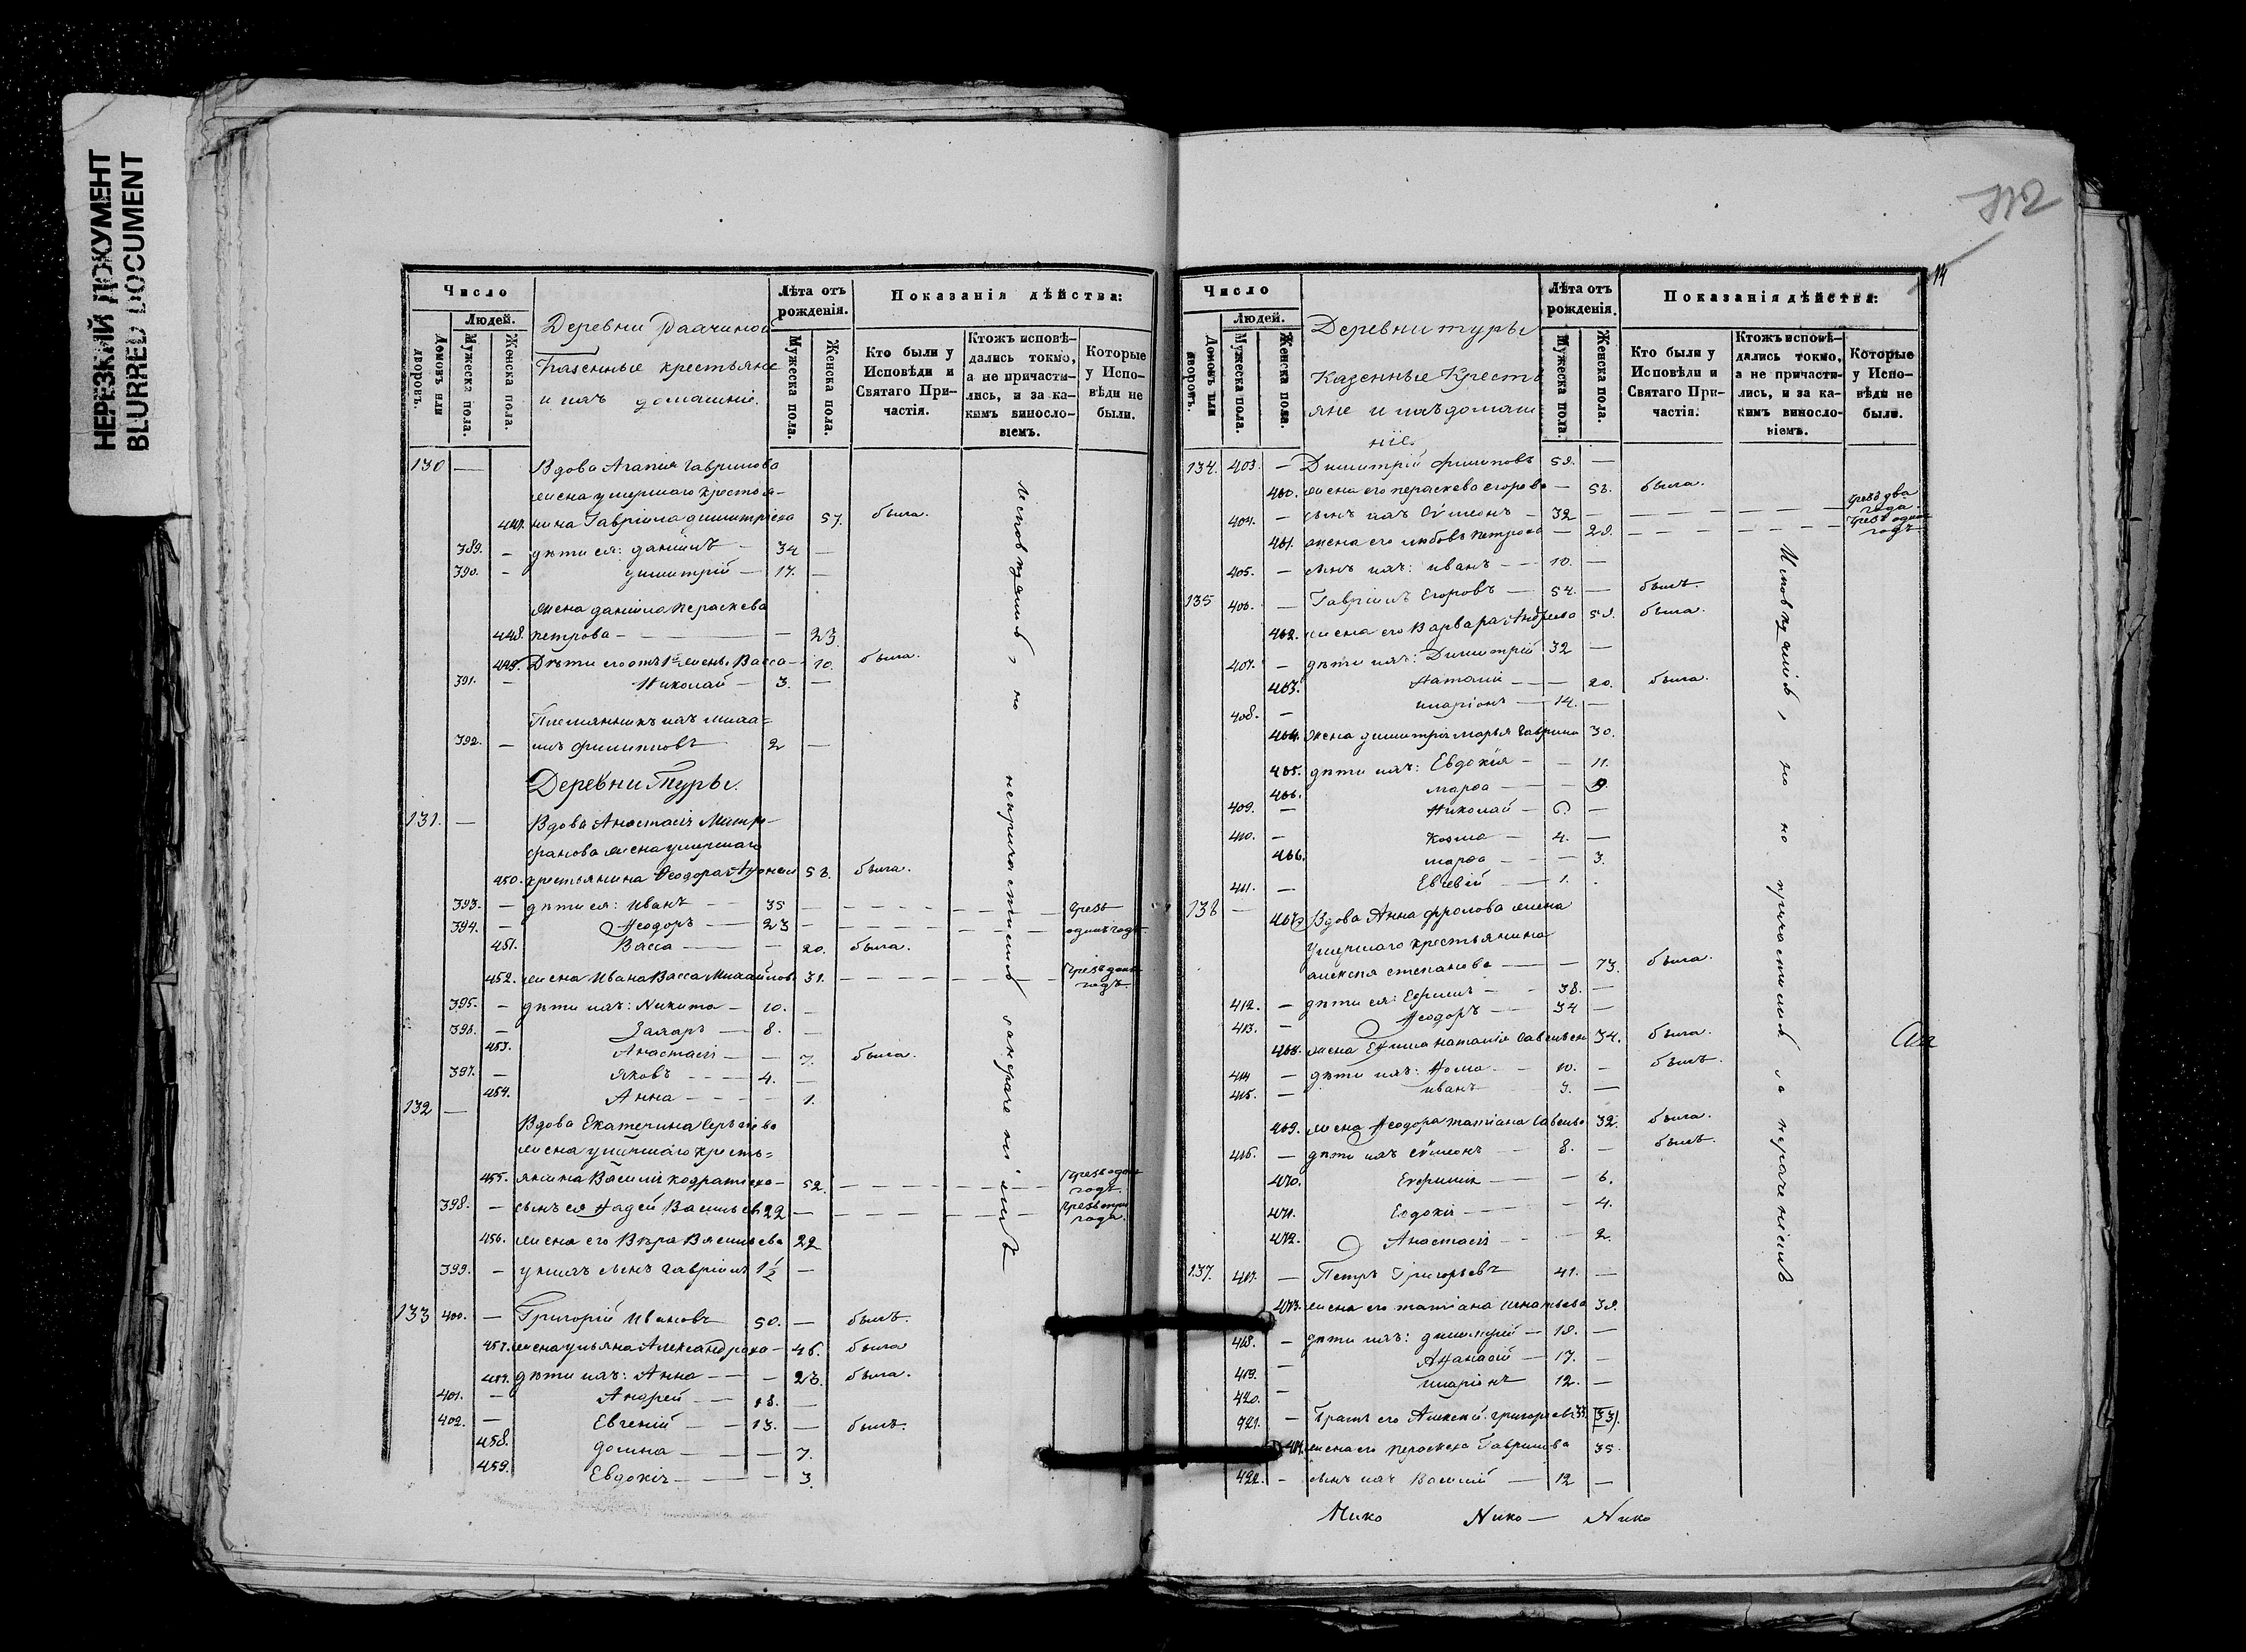 НЕРЕЗКИЙ ДОКУМЕНТ
BLURRED DOCUMENT
Число
Людей.
Домовъ или дворовъ.
Мужеска пола.
Женска пола.
Деревни
Казенные крестьяне
и ихъ домашніе.
Лѣта отъ рожденія.
Мужеска пола.
Женска пола.
Показанія дѣйства:
Кто были у Исповѣди и Святаго При-частія.
Ктожъ исповѣ-дались токмо, а не причасти-лись, и за ка-кимъ винословіемъ.
Которые у Испо-вѣди не были.
130 — Вдова Агапія Гаврилова
жена умершаго крестья-
447. нина Гавріила Димитріева 57. была.
389. — дѣти ея: Даніилъ — 34 —
390. — Димитрій — 17. —
жена Даніила Параскева
448. Петрова — — 23
449. Дѣти его отъ 1й жены: Васса — 10. была.
391. — Николай — 3. —
Племянникъ ихъ Миха=
392. — илъ Филипповъ 2 —
Деревни Туры.
131. — Вдова Анастасія Митро-
фанова жена умершаго
450. крестьянина Ѳеодора 53. была.
393. — дѣти ея: Иванъ — 35 — чрезъ
394. — Ѳеодоръ — 23 — одинъ годъ.
451. Васса — — 20. была.
452. жена Ивана Васса Михайлова 31. — чрезъ одинъ годъ.
395. — дѣти ихъ: Никита — 10. —
396. — Захаръ — 8. —
453. Анастасія — — 7. была.
397. — Яковъ — 4. —
454. Анна — — 1.
132 — Вдова Екатерина Сергіева
жена умершаго кресть=
455. янина Василія Кодратіева — 52. — чрезъ одинъ годъ.
398. — сынъ ея Фадей Васильевъ 22 — чрезъ три года.
456. жена его Вѣра Васильева 22
399. — у нихъ сынъ Гавріилъ 1½ —
133 400. — Григорій Ивановъ 50. — былъ.
457. жена Ульяна Александрова — 46. была
дѣти ихъ: Анна — — 23. была.
401. — Андрей — 18. —
402. — Евгеній — 13. — былъ.
458. Домна — — 7.
459. Евдокія — — 3.
Исповѣдались, но непричастились за нераченіемъ
112
14
Число
Людей.
Домовъ или дворовъ.
Мужеска пола.
Женска пола.
Деревни Туры
Казенные Кресть
яне и ихъ домаш
ніе.
Лѣта отъ рожденія.
Мужеска пола.
Женска пола.
Показанія дѣйства:
Кто были у Исповѣди и Святаго При-частія.
Ктожъ исповѣ-дались токмо, а не причасти-лись, и за ка-кимъ винословіемъ.
Которые у Испо-вѣди не были.
134. 403. — Димитрій Филиповъ 59. —
460. жена его Параскева Егорова — 58. была.
404. — сынъ ихъ Сѵмеонъ — 32 — чрезъ два года.
461. жена его Любовь Петрова — 29. — чрезъ одинъ годъ.
405. — сынъ ихъ: Иванъ — 10. —
135 406. — Гавріилъ Егоровъ — 54. — былъ.
462. жена его Варвара Андреева 59. была.
407. — дѣти ихъ: Димитрій 32 —
463. Наталія — — 20. была.
408. — Иларіонъ — 14. —
464. жена Димитрія Марья Гаврилова 30.
465. дѣти ихъ: Евдокія — — 11.
466. Марѳа — — 9.
409. — Николай — 6. —
410. — Козма — 4. —
466. Марѳа — — 3.
411. — Евсевій — 1.
136 — 467. Вдова Анна Фролова жена
умершаго крестьянина
Алексія Степанова — — 73. была.
412. — дѣти ея: Ефимъ — 38. —
413. — Ѳеодоръ — 34 —
468. жена Ефима Наталія Савельева 34. была.
414 — дѣти ихъ: Ѳома — 10. — былъ.
415. — Иванъ 3. —
469. жена Ѳеодора Татіана Савельева 32. была.
416. — дѣти ихъ Сѵмеонъ — 8. — былъ.
470. Евфимія — — 6.
471. Евдокія — — 4.
472. Анастасія — — 2.
137. 417. — Петръ Григорьевъ 41. —
473. жена его Татіана Игнатьева 39.
418. — дѣти ихъ: Димитрій — 19. —
419. — Аѳанасій — 17. —
420. — Иларіонъ 12. —
421. — Братъ его Алексій Григорьевъ 33.
474. жена его Параскева Гаврилова 35.
422. — сынъ ихъ Василій — 12 —
Исповѣдались, но не причастились за нераченіемъ
Нико Нико — Нико